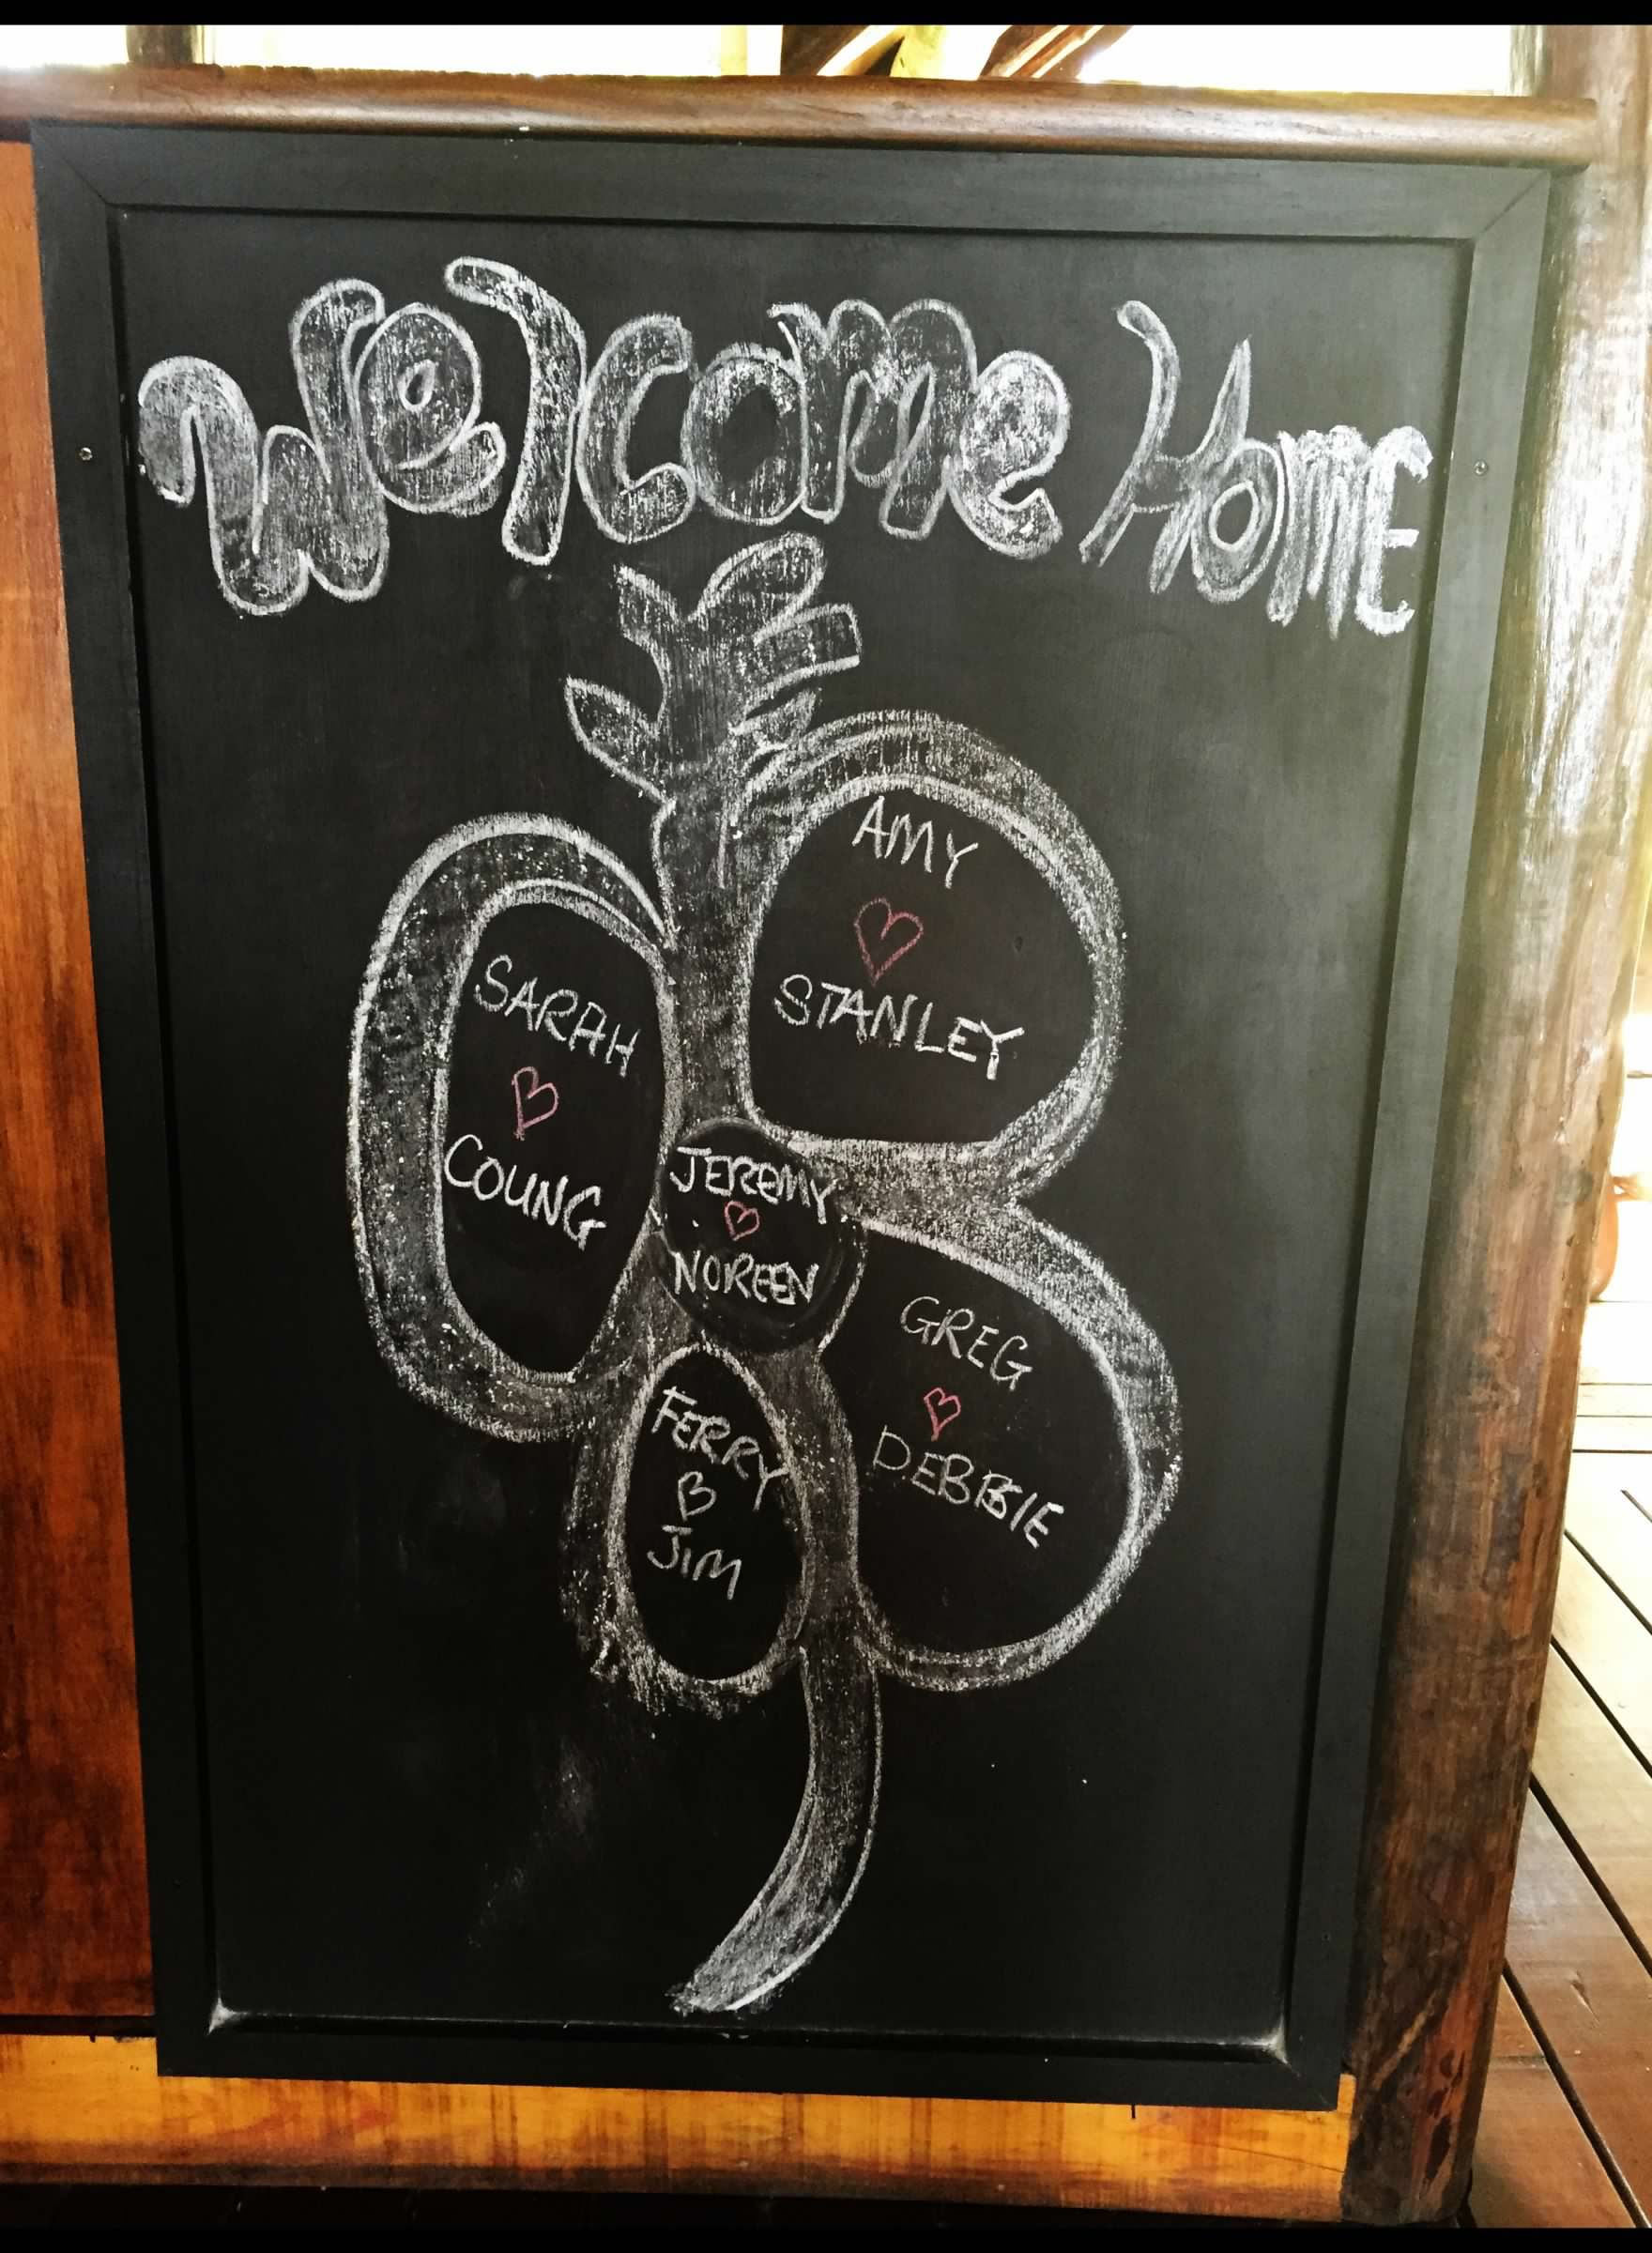 Welcome Home
AMY
STANLEY
SARAH
COUNG
JEREMY
NOREEN
GREG
DEBBIE
FERRY
JIM